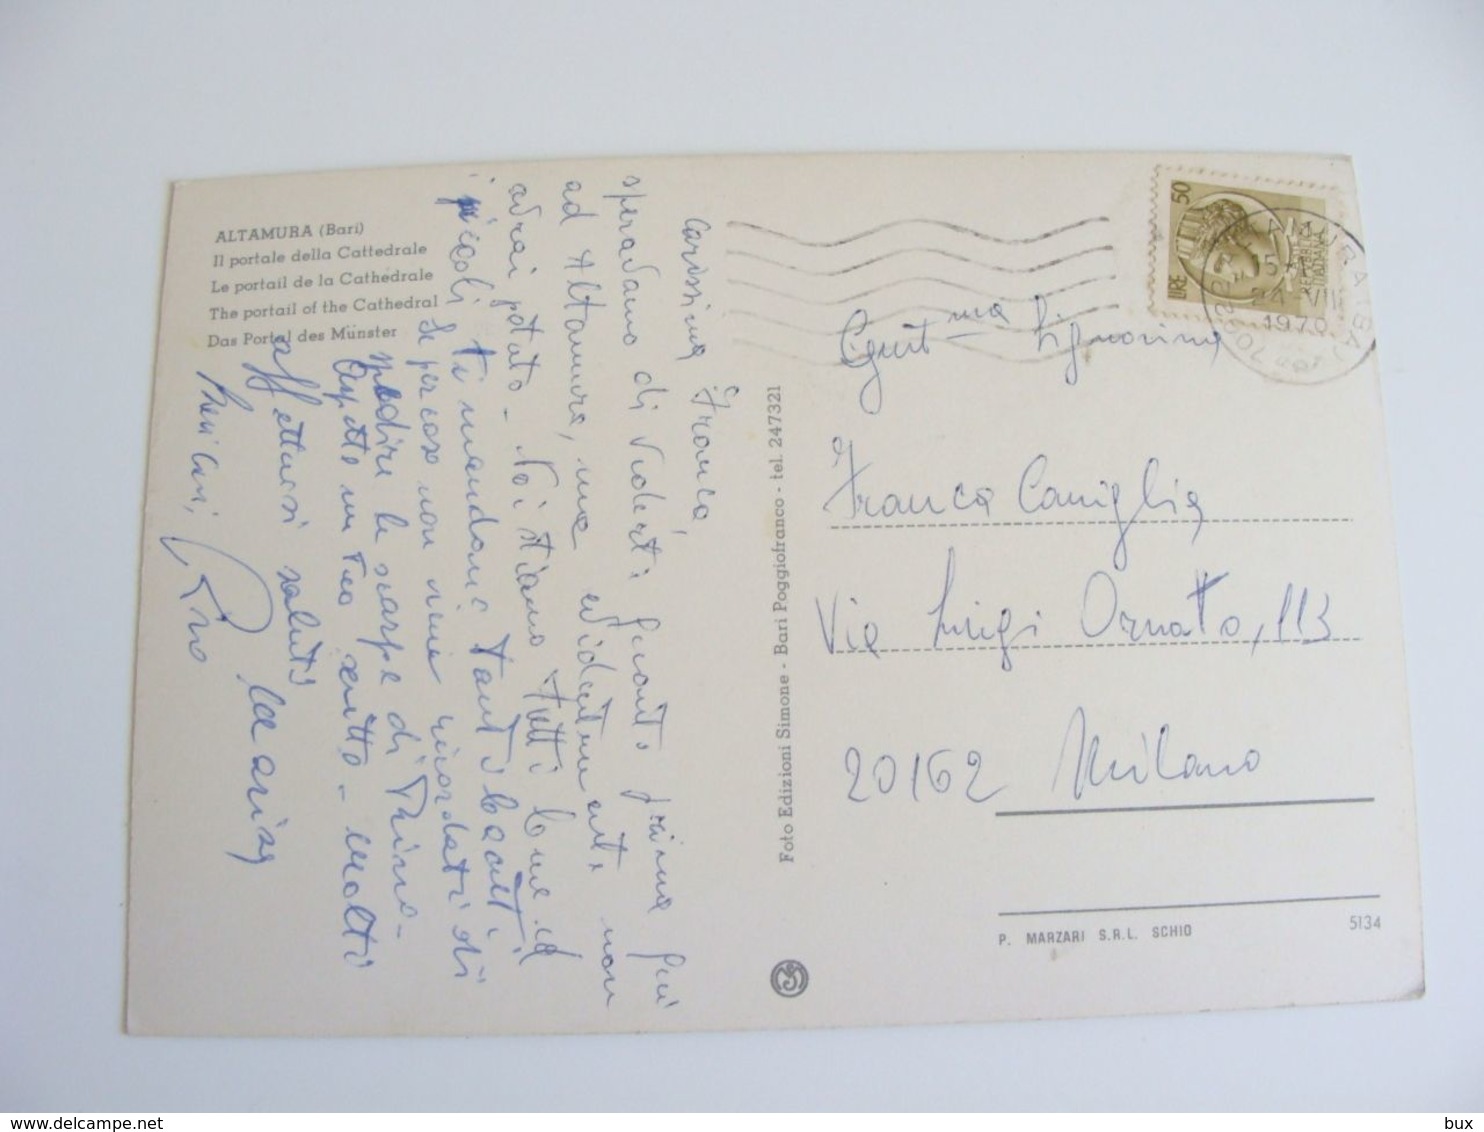 ALTAMURA (Bari)
Il portale della Cattedrale
Le portail de la Cathédrale
The portail of the Cathedral
Das Portal des Münster
Carissima Franca,
speravamo di vederti quanto prima qui
ad Altamura, ma evidentemente non
avrai potuto - Noi stiamo tutti bene ed
i piccoli ti mandano tanti bacetti
Se per caso non vieni ricordati di
spedire le scarpe di
Aspetto un tuo scritto - Molti
affettuosi saluti
Foto Edizioni Simone - Bari Poggiofranco - tel. 247321
LIRE 50
1970
Gent.ma Signorina
Franca Caniglia
Via Luigi Ornato, 113
20162 Milano
P. MARZARI S.R.L. SCHIO
5134
bux